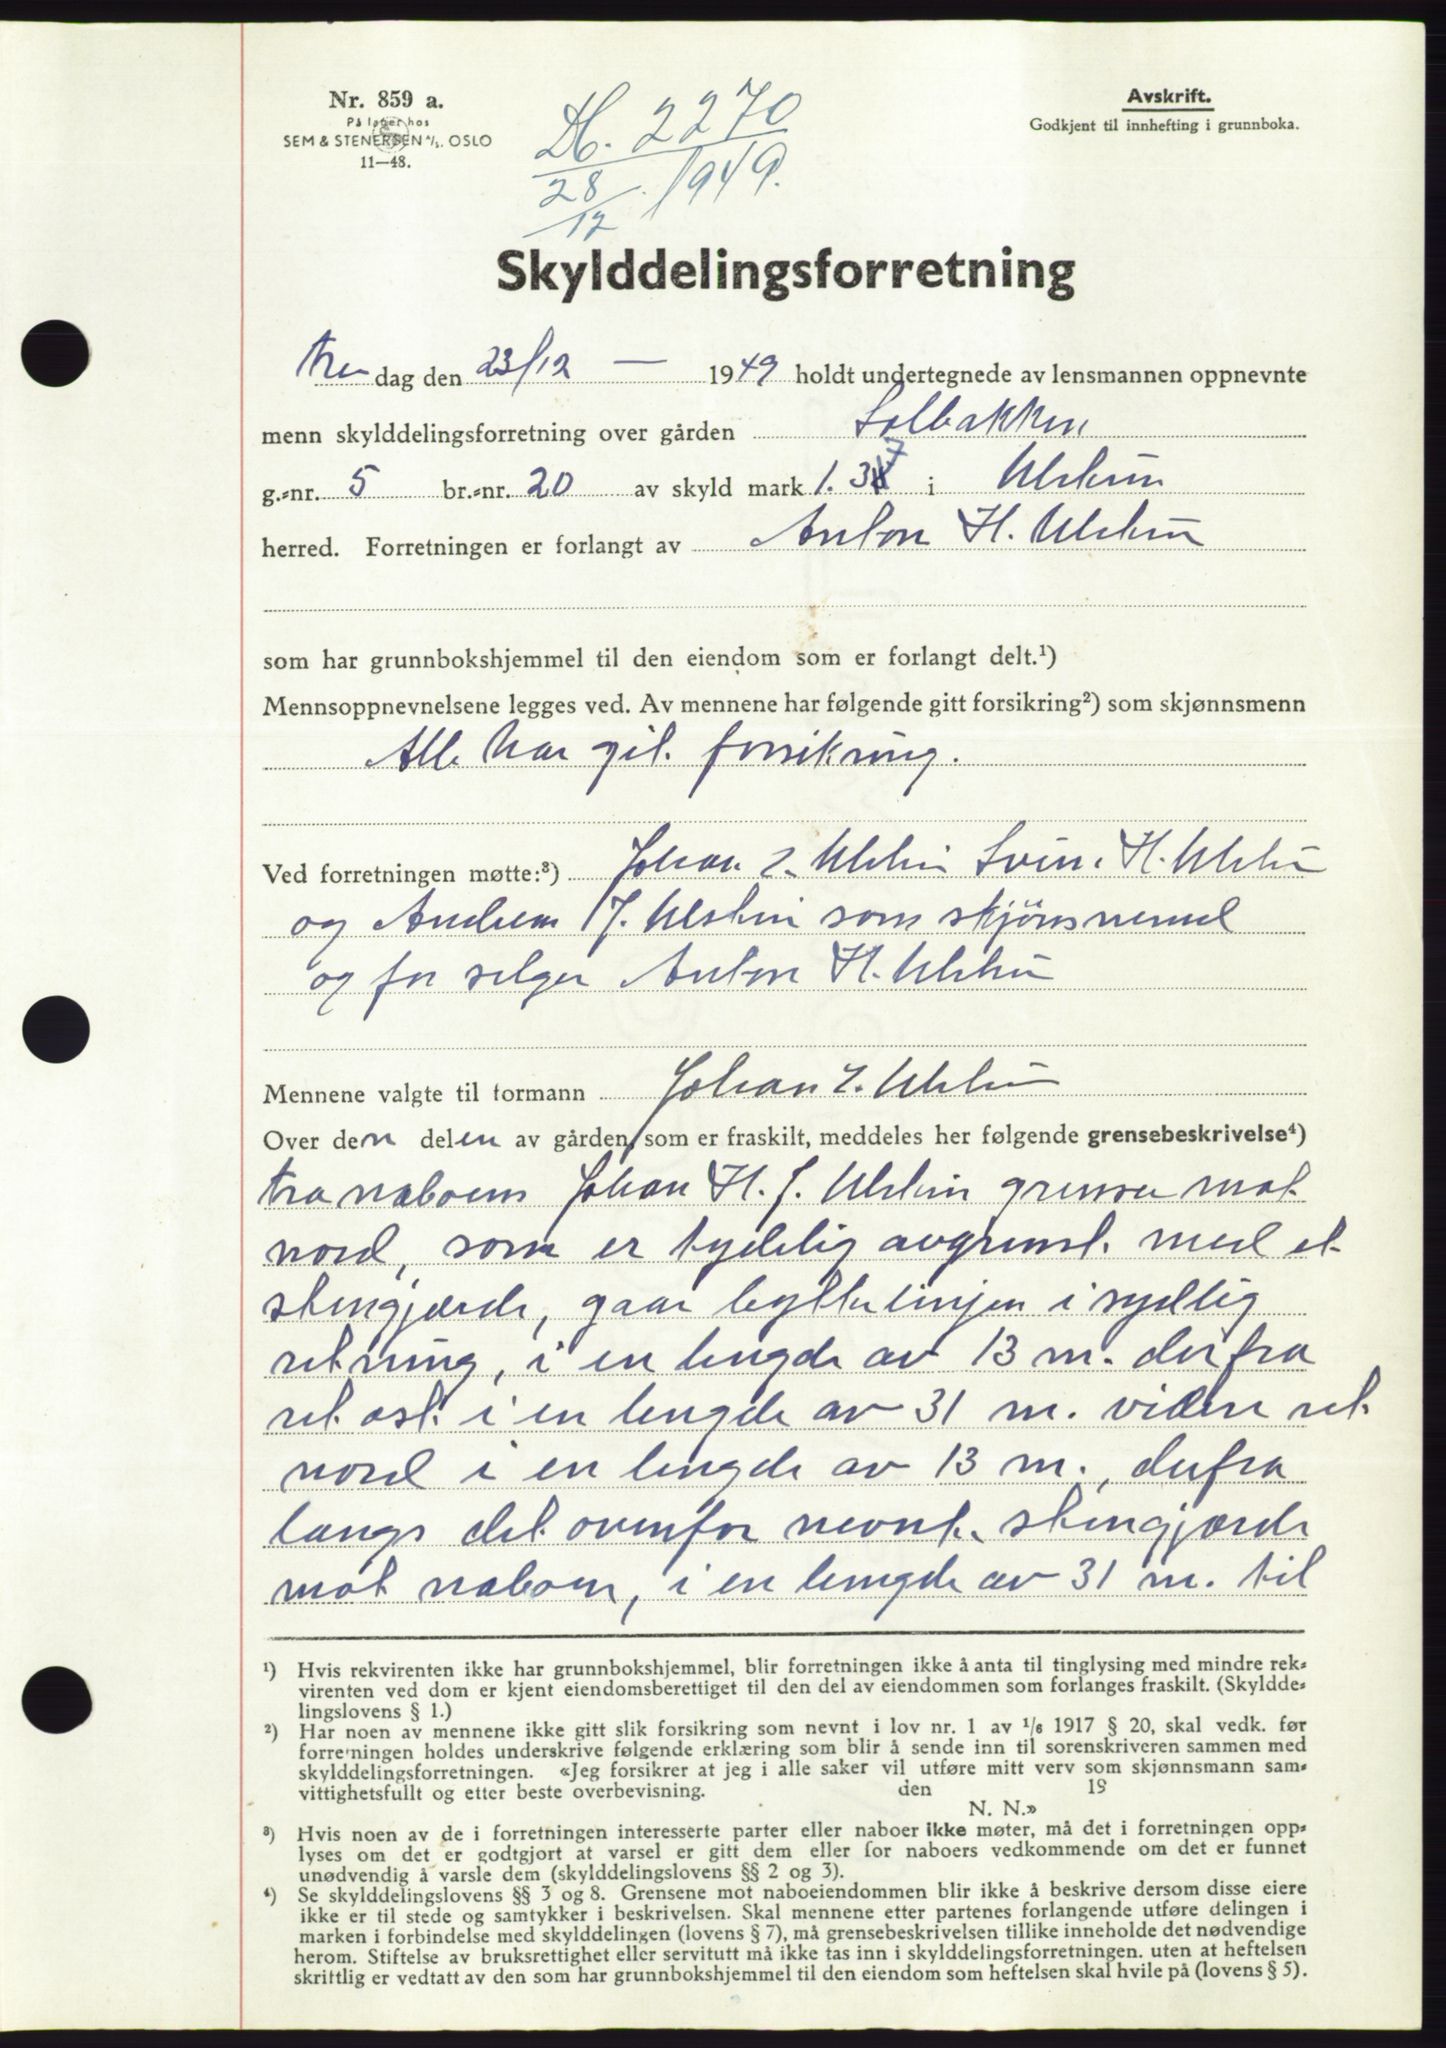 Nr. 859 a.
På lager hos
SEM & STENERSEN A/S. OSLO
11—48.
Db. 2270
28/12 1949.
Avskrift.
Godkjent til innhefting i grunnboka.
Skylddelingsforretning
dag den 23/12 — 1949 holdt undertegnede av lensmannen oppnevnte
menn skylddelingsforretning over gården Solbakken
g.=nr. 5 br.=nr. 20 av skyld mark 1.37 i Ulstein
herred. Forretningen er forlangt av Anton H. Ulstein
som har grunnbokshjemmel til den eiendom som er forlangt delt.¹)
Mennsoppnevnelsene legges ved. Av mennene har følgende gitt forsikring²) som skjønnsmenn
Alle har git forsikring.
Ved forretningen møtte:³) Johan I. Ulstein Svein H. Ulstein
og Andreas J. Ulstein som skjönsmend
og for selger Anton H. Ulstein
Mennene valgte til formann Johan I. Ulstein
Over den delen av gården, som er fraskilt, meddeles her følgende grensebeskrivelse⁴)
Fra naboens Johan H. J. Ulstein grense mot
nord, som er tydelig avgrenset med et
stengjærde, gaar byttelinjen i sydlig
retning, i en lengde av 13 m. derfra
ret ost i en lengde av 31 m. videre ret
nord i en lengde av 13 m., derfra
langs det ovenfor nevnte stengjærde
mot naboen, i en lengde av 31 m. til
¹) Hvis rekvirenten ikke har grunnbokshjemmel, blir forretningen ikke å anta til tinglysing med mindre rek=
virenten ved dom er kjent eiendomsberettiget til den del av eiendommen som forlanges fraskilt. (Skyldde=
lingslovens § 1.)
²) Har noen av mennene ikke gitt slik forsikring som nevnt i lov nr. 1 av 1/6 1917 § 20, skal vedk. før
forretningen holdes underskrive følgende erklæring som blir å sende inn til sorenskriveren sammen med
skylddelingsforretningen. «Jeg forsikrer at jeg i alle saker vil utføre mitt verv som skjønnsmann sam=
vittighetsfullt og etter beste overbevisning. den 19
N. N.»
³) Hvis noen av de i forretningen interesserte parter eller naboer ikke møter, må det i forretningen opp=
lyses om det er godtgjort at varsel er gitt dem eller for naboers vedkommende om det er funnet
unødvendig å varsle dem (skylddelingslovens §§ 2 og 3).
⁴) Se skylddelingslovens §§ 3 og 8. Grensene mot naboeiendommen blir ikke å beskrive dersom disse eiere
ikke er til stede og samtykker i beskrivelsen. Skal mennene etter partenes forlangende utføre delingen i
marken i forbindelse med skylddelingen (lovens § 7), må grensebeskrivelsen tillike inneholde det nødvendige
herom. Stiftelse av bruksrettighet eller servitutt må ikke tas inn i skylddelingsforretningen. uten at heftelsen
skriftlig er vedtatt av den som har grunnbokshjemmel til den eiendom som heftelsen skal hvile på (lovens § 5).